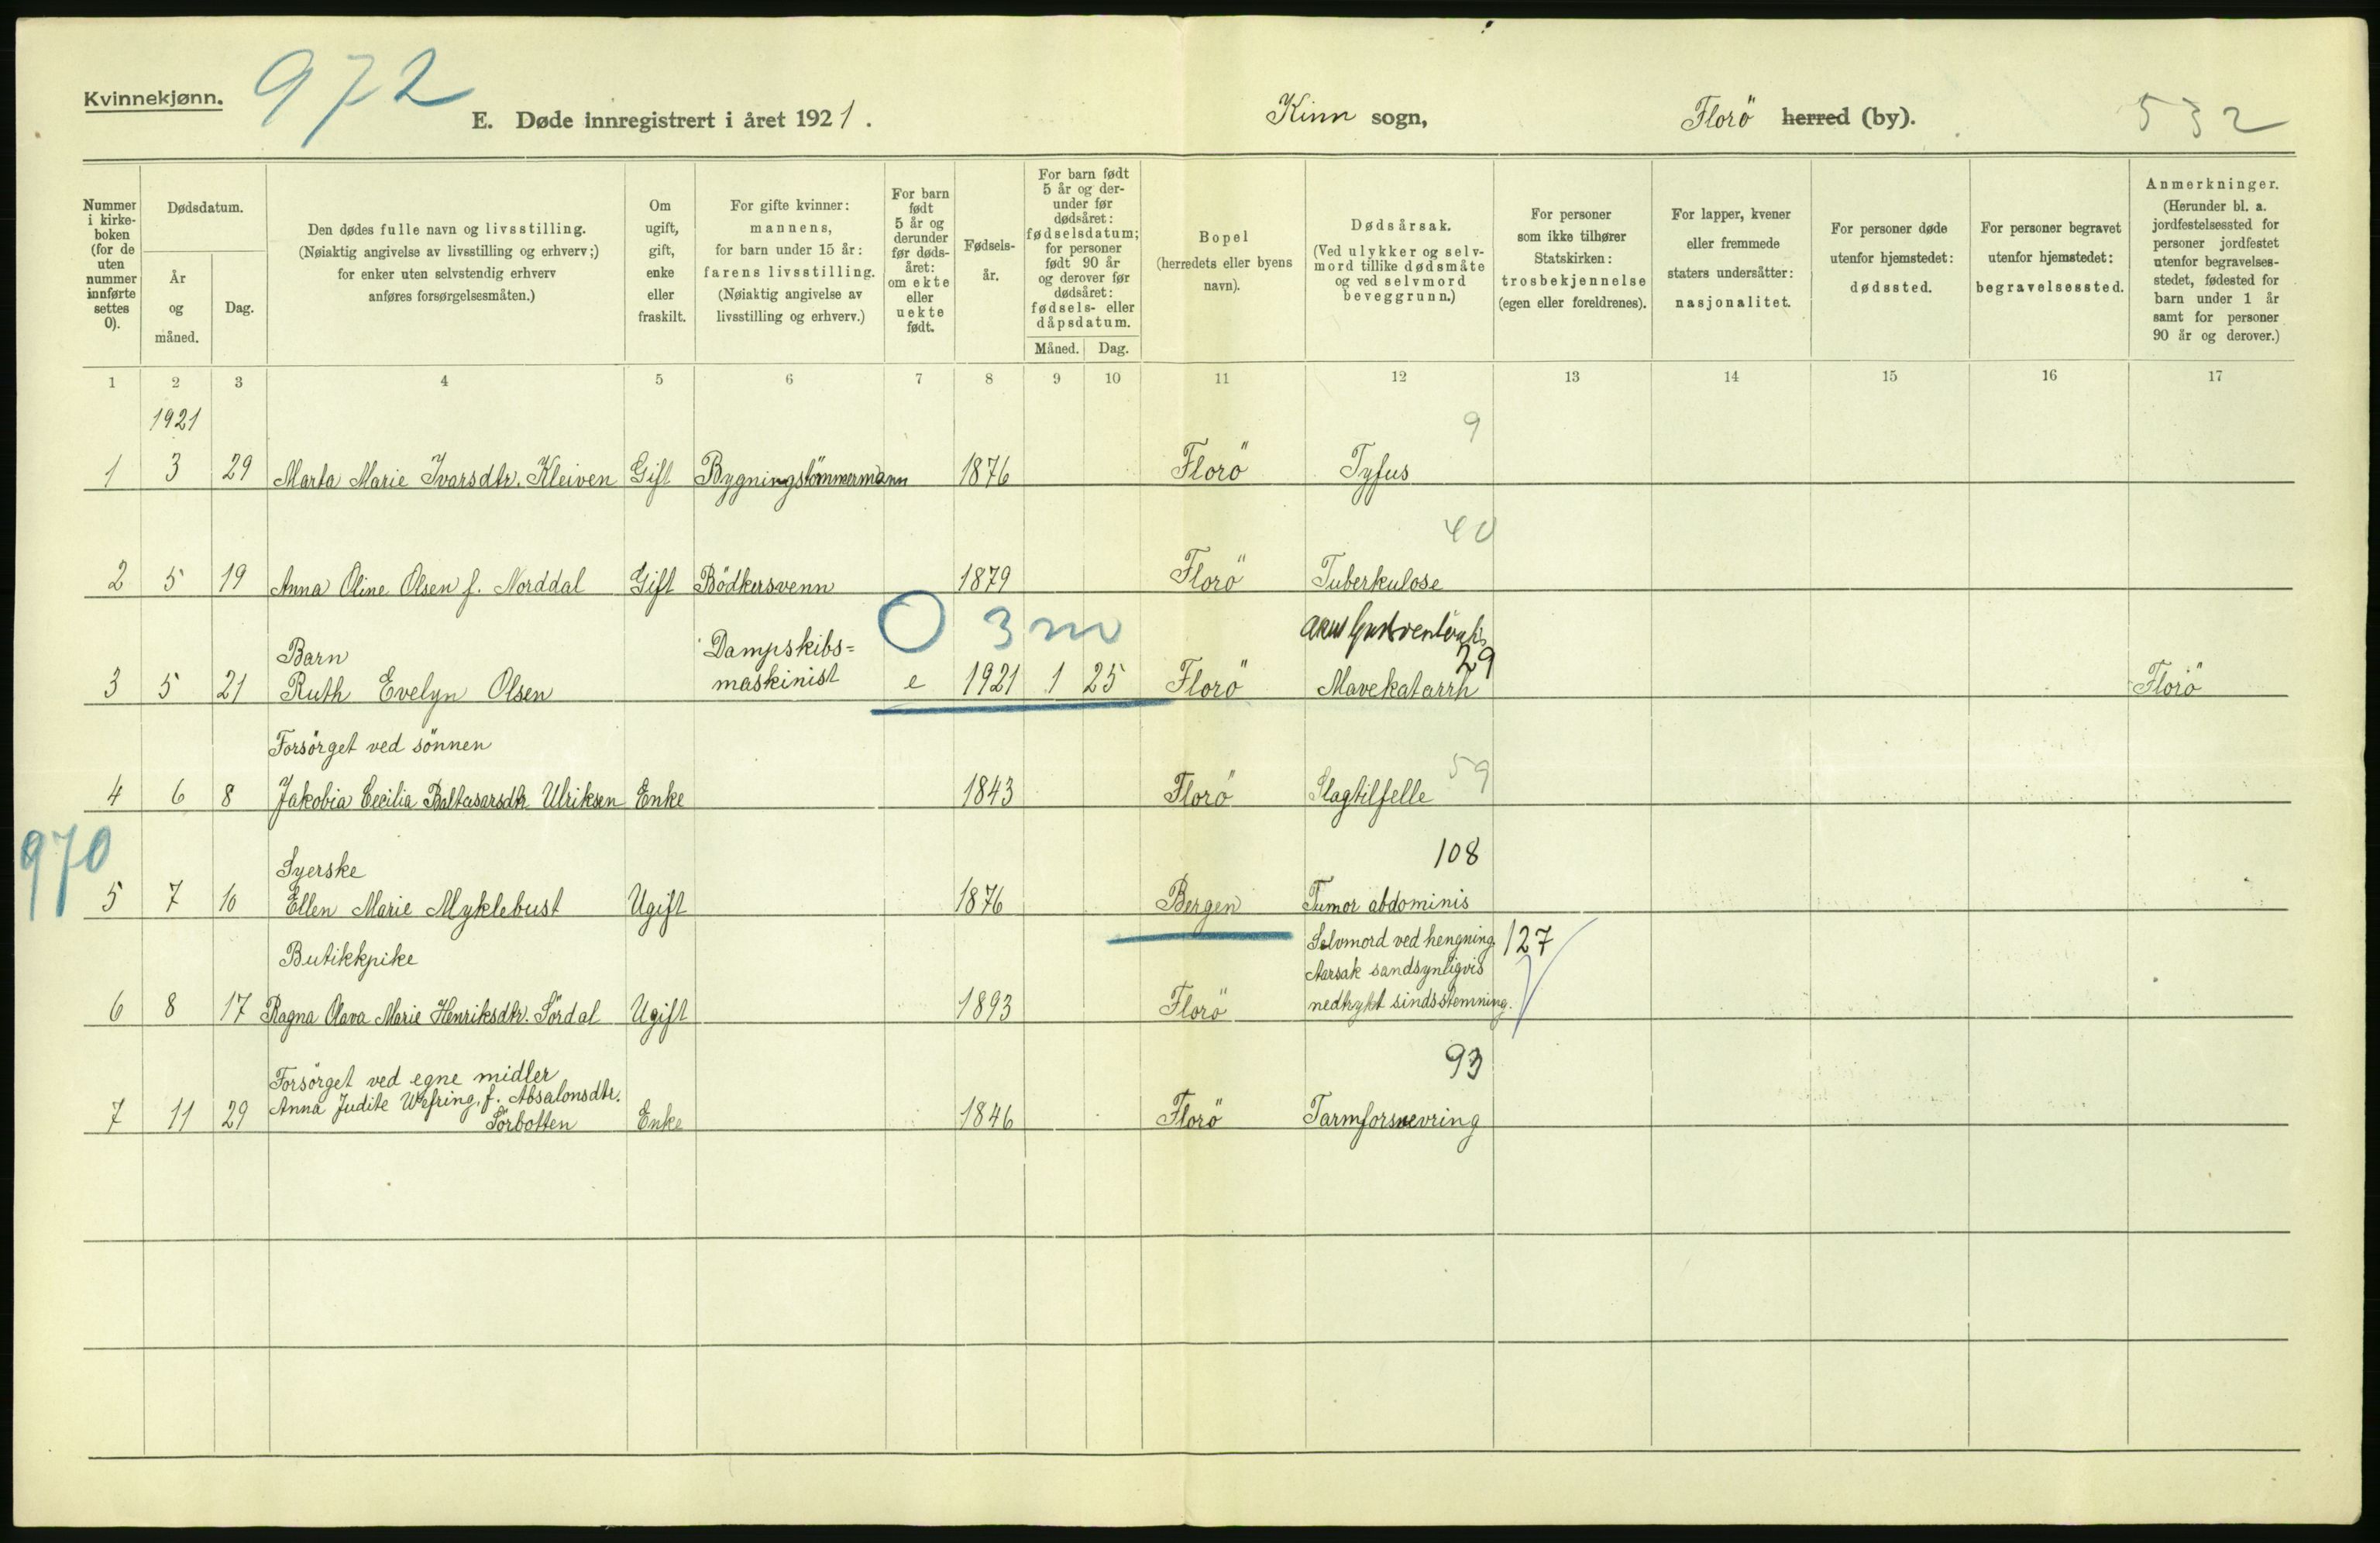 Kvinnekjønn.
972
E. Døde innregistrert i året 1921.
Kinn sogn,
Florö herred (by).
532
Nummer i kirkeboken (for de uten nummer innførte settes 0).
Dødsdatum.
År og måned.
Dag.
Den dødes fulle navn og livsstilling.
(Nøiaktig angivelse av livsstilling og erhverv;)
for enker uten selvstendig erhverv
anføres forsørgelsesmåten.)
Om ugift, gift, enke eller fraskilt.
For gifte kvinner:
mannens,
for barn under 15 år:
farens livsstilling.
(Nøiaktig angivelse av
livsstilling og erhverv.)
For barn født 5 år og derunder før dødsåret: om ekte eller uekte født.
Fødselsår.
For barn født 5 år og derunder før dødsåret: fødselsdatum; for personer født 90 år og derover før dødsåret: fødsels- eller dåpsdatum.
Måned.
Dag.
Bopel
(herredets eller byens
navn).
Dødsårsak.
(Ved ulykker og selvmord tillike dødsmåte og ved selvmord beveggrunn.)
For personer
som ikke tilhører
Statskirken:
trosbekjennelse
(egen eller foreldrenes).
For lapper, kvener
eller fremmede
staters undersåtter:
nasjonalitet.
For personer døde
utenfor hjemstedet:
dødssted.
For personer begravet
utenfor hjemstedet:
begravelsessted.
Anmerkninger.
(Herunder bl. a.
jordfestelsessted for
personer jordfestet
utenfor begravelses-
stedet, fødested for
barn under 1 år
samt for personer
90 år og derover.)
1 2 3 4 5 6 7 8 9 10 11 12 13 14 15 16 17
1921
9
1 3 29 Marta Marie Ivarsdtr. Kleiven Gift Bygningstömmermann 1876 Florö Tyfus
40
2 5 19 Anna Oline Olsen f. Norddal Gift Bödkersvenn 1879 Florö Tuberkulose
O 3 m
Barn
Dampskibs=
29
3 5 21 Ruth Evelyn Olsen maskinist e 1921 1 25 Florö Mavekatarrh Florö
Forsörget ved sönnen
59
4 6 8 Jakobia Cecilia Baltasarsdtr Ulriksen Enke 1843 Florö Slagtilfelle
970
108
Syerske
5 7 10 Ellen Marie Myklebust Ugift 1876 Bergen Tumor abdominis
Butikkpike
Selvmord ved hengning. 127
Aarsak sandsynligvis
6 8 17 Ragna Olava Marie Henriksdtr. Sördal Ugift 1893 Florö nedtrykt sindsstemning.
93
Forsörget ved egne midler
Anna Judite f. Absalonsdtr.
7 11 29 Sörbotten Enke 1846 Florö Tarmforsnevring